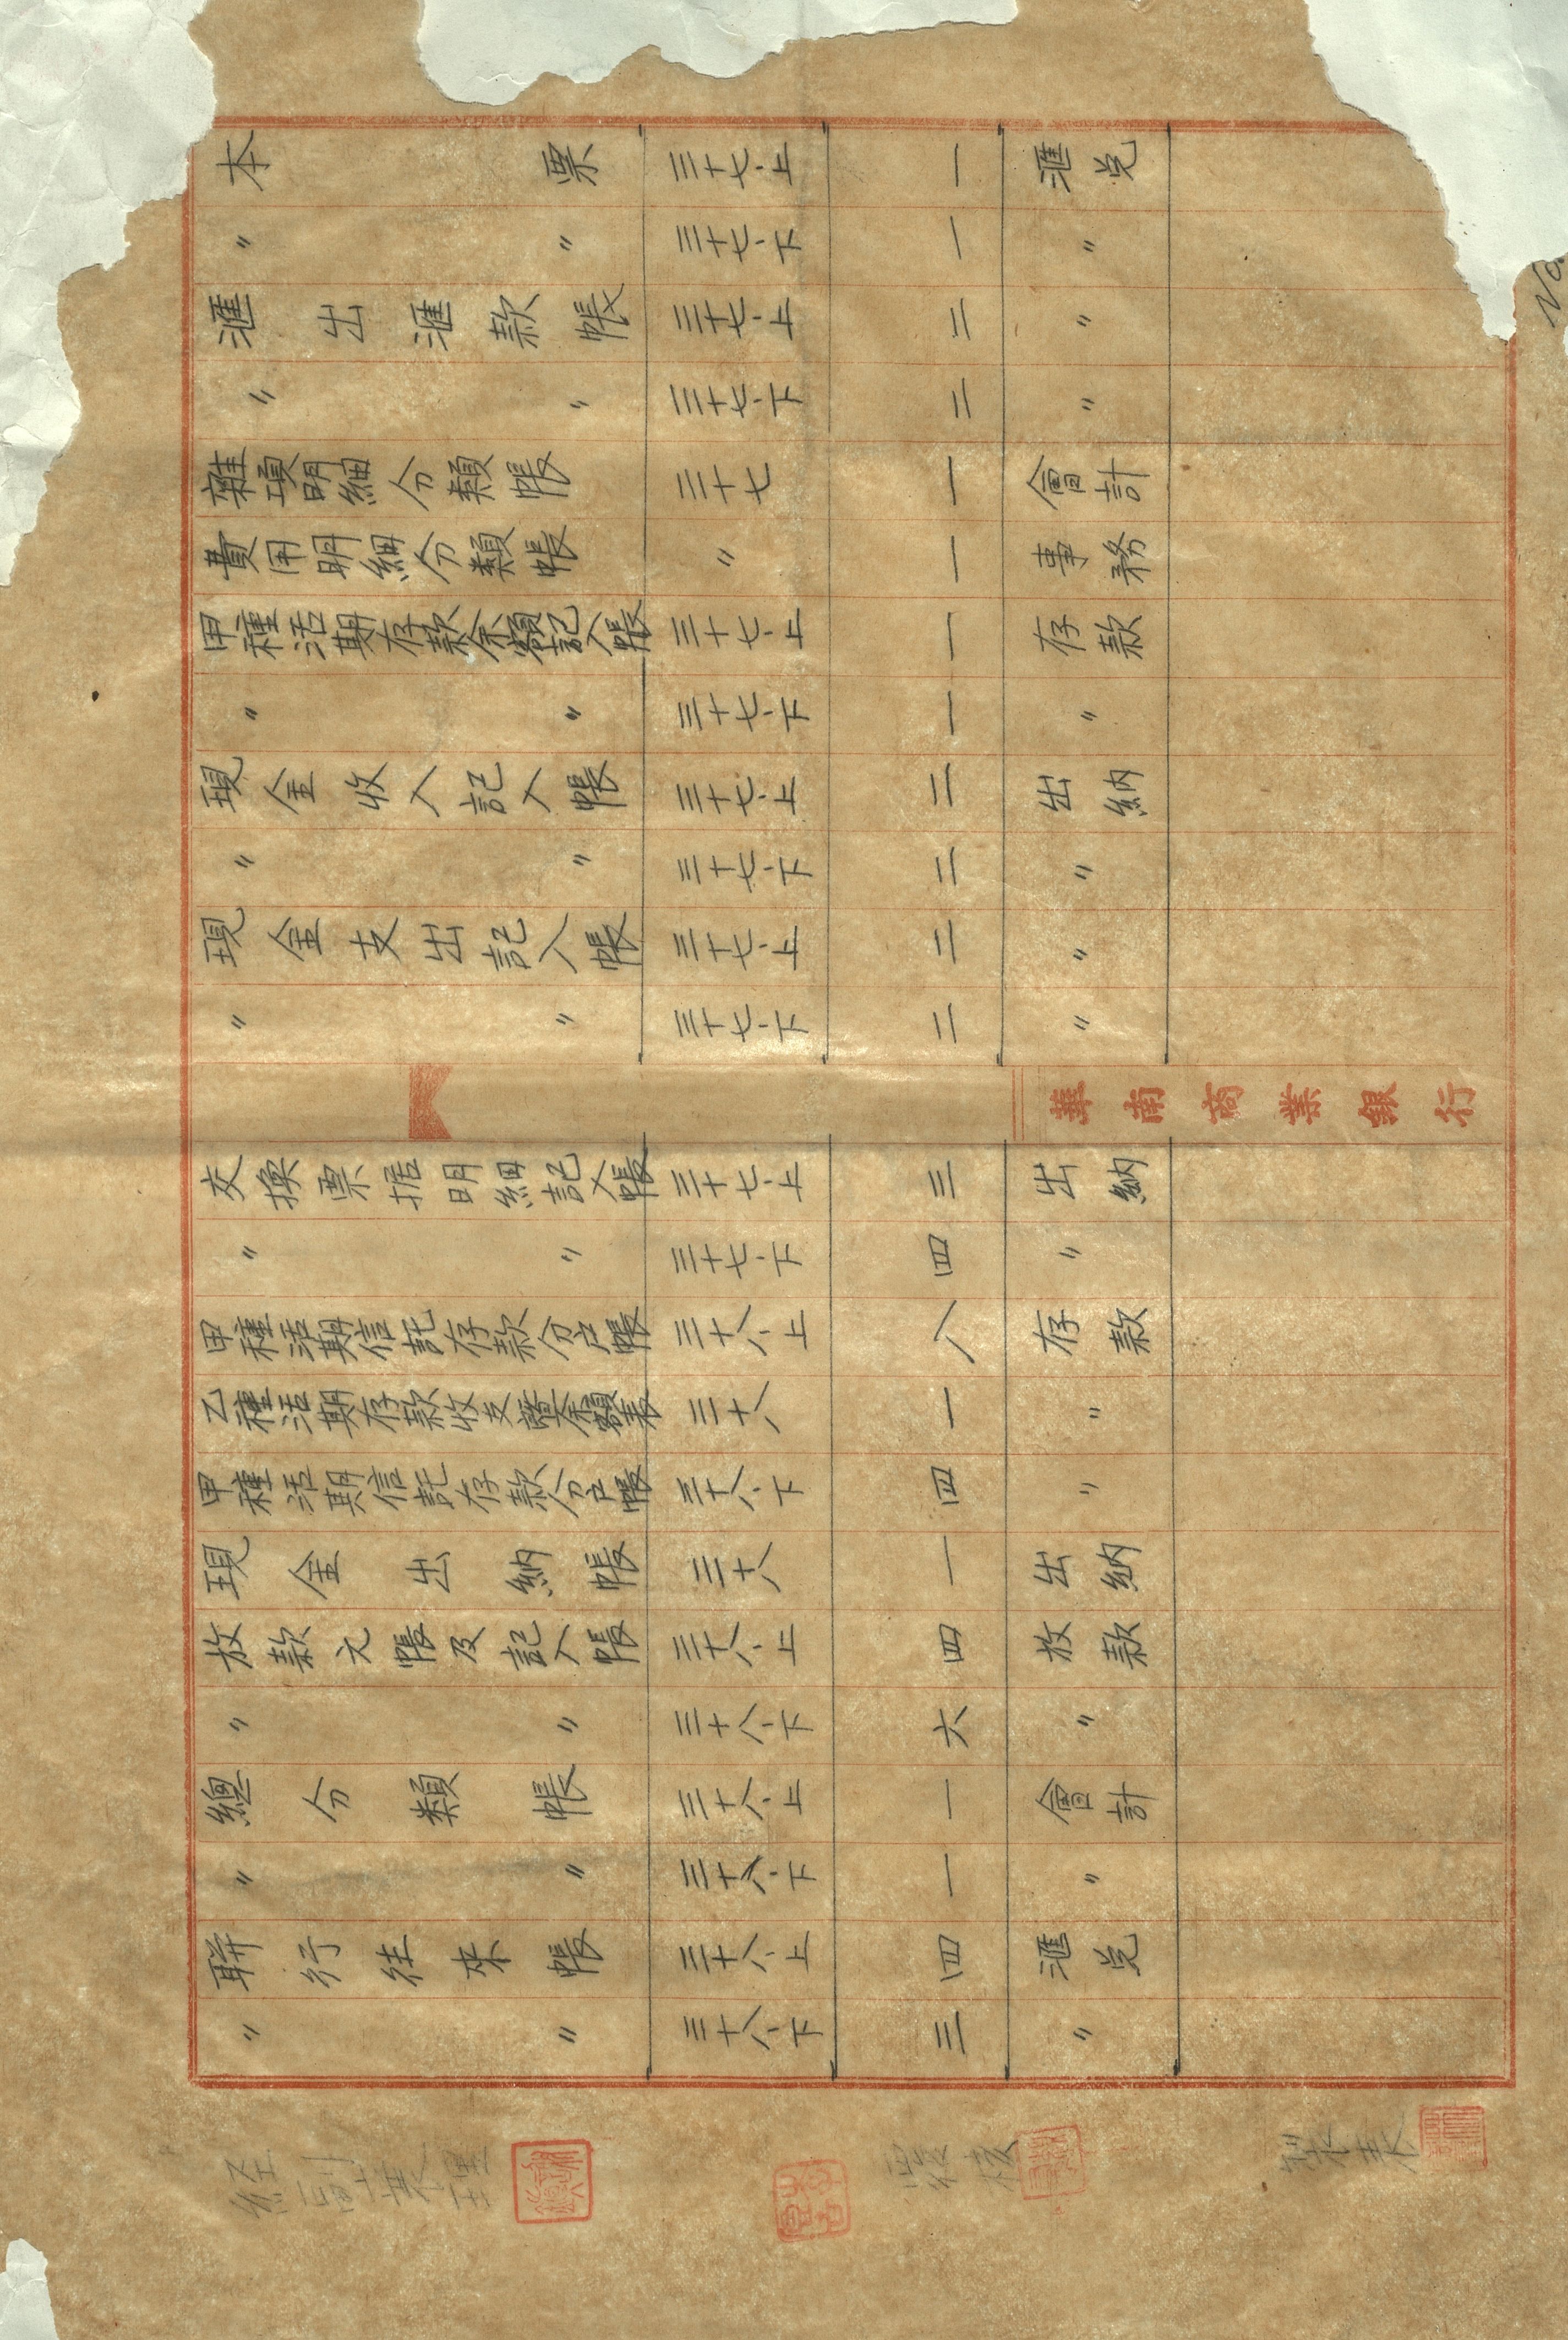 本票 三十七、上 一 匯兌
〃 〃 三十七、下 一 〃
匯出匯款帳 三十七、上 二 〃
〃 〃 三十七、下 二 〃
雜項明細分類帳 三十七 一 會計
費用明細分類帳 〃 一 事務
甲種活期存款余額記入帳 三十七、上 一 存款
〃 〃 三十七、下 一 〃
現金收入記入帳 三十七、上 二 出納
〃 〃 三十七、下 二 〃
現金支出記入帳 三十七、上 二 〃
〃 〃 三十七、下 二 〃
華南商業銀行
交換票据明細記入帳 三十七、上 三 出納
〃 〃 三十七、下 四 〃
甲種活期信託存款分戶帳 三十八、上 八 存款
乙種活期存款收支曁余額表 三十八 一 〃
甲種活期信託存款分戶帳 三十八、下 四 〃
現金出納帳 三十八 一 出納
放款元帳及記入帳 三十八、上 四 放款
〃 〃 三十八、下 六 〃
總分類帳 三十八、上 一 會計
〃 〃 三十八、下 一 〃
聯行往來帳 三十八、上 四 匯兌
〃 〃 三十八、下 三 〃
經副襄理 覆核 製表
No.